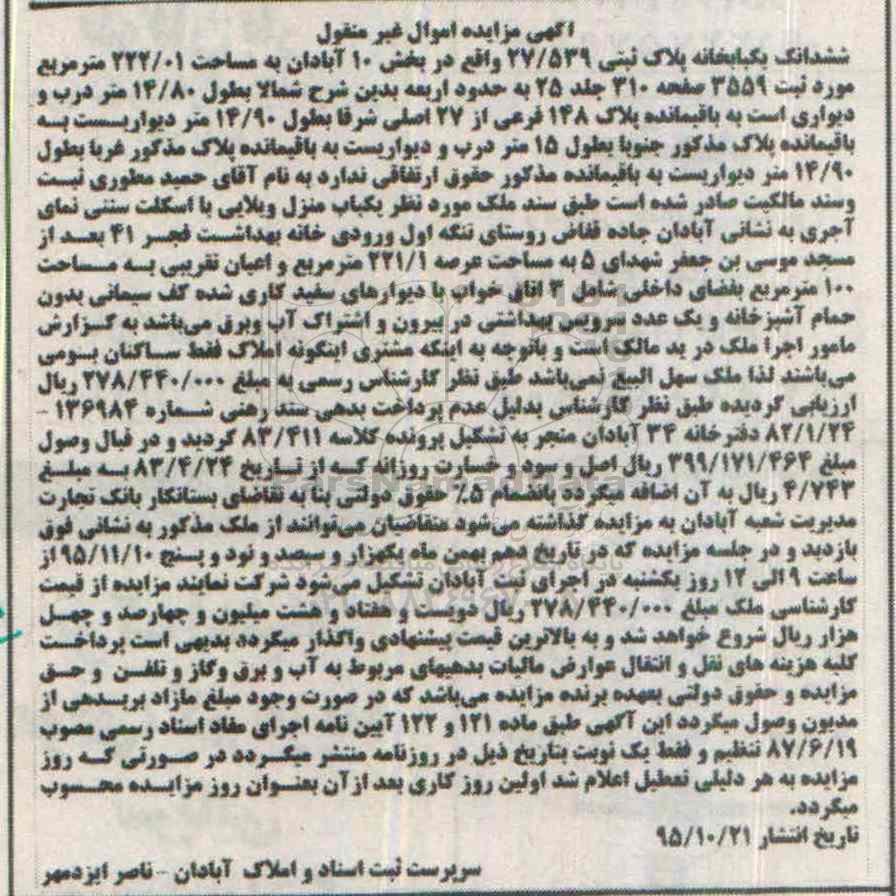 آگهی مزایده اموال غیر منقول
ششدانگ یکبابخانه پلاک ثبتی ۲۷/۵۳۹ واقع در بخش ۱۰ آبادان به مساحت ۲۲۲/۰۱ مترمربع
مورد ثبت ۳۵۵۹ صفحه ۳۱۰ جلد ۲۵ به حدود اربعه بدین شرح شمالا بطول ۱۴/۸۰ متر درب و
دیواری است به باقیمانده پلاک ۱۴۸ فرعی از ۲۷ اصلی شرقا بطول ۱۴/۹۰ متر دیواریست به
باقیمانده پلاک مذکور جنوبا بطول ۱۵ متر درب و دیواریست به باقیمانده پلاک مذکور غربا بطول
۱۴/۹۰ متر دیواریست به باقیمانده مذکور حقوق ارتفاقی ندارد به نام آقای حمید مطوری ثبت
وسند مالکیت صادر شده است طبق سند ملک مورد نظر یکباب منزل ویلایی با اسکلت سنتی نمای
آجری به نشانی آبادان جاده قفاص روستای تنگه اول ورودی خانه بهداشت فجر ۴۱ بعد از
مسجد موسی بن جعفر شهدای ۵ به مساحت عرصه ۲۲۱/۱ مترمربع و اعیان تقریبی به مساحت
۱۰۰ مترمربع بفضای داخلی شامل ۳ اتاق خواب با دیوارهای سفید کاری شده کف سیمانی بدون
حمام آشپزخانه و یک عدد سرویس بهداشتی در بیرون و اشتراک آب وبرق می‌باشد به گزارش
مامور اجرا ملک در ید مالک است و باتوجه به اینکه مشتری اینگونه املاک فقط ساکنان بومی
می‌باشند لذا ملک سهل البیع نمی‌باشد طبق نظر کارشناس رسمی به مبلغ ۲۷۸/۴۴۰/۰۰۰ ریال
ارزیابی گردیده طبق نظر کارشناس بدلیل عدم پرداخت بدهی سند رهنی شماره ۱۳۶۹۸۴ -
۸۲/۱/۲۴ دفترخانه ۳۴ آبادان منجر به تشکیل پرونده کلاسه ۸۳/۴۱۱ گردید و در قبال وصول
مبلغ ۳۹۹/۱۷۱/۴۶۴ ریال اصل و سود و خسارت روزانه که از تاریخ ۸۳/۴/۲۴ به مبلغ
۴/۷۴۳ ریال به آن اضافه میگردد بانضمام ۵٪ حقوق دولتی بنا به تقاضای بستانکار بانک تجارت
مدیریت شعبه آبادان به مزایده گذاشته می‌شود متقاضیان می‌توانند از ملک مذکور به نشانی فوق
بازدید و در جلسه مزایده که در تاریخ دهم بهمن ماه یکهزار و سیصد و نود و پنج ۹۵/۱۱/۱۰ از
ساعت ۹ الی ۱۲ روز یکشنبه در اجرای ثبت آبادان تشکیل می‌شود شرکت نمایند مزایده از قیمت
کارشناسی ملک مبلغ ۲۷۸/۴۴۰/۰۰۰ ریال دویست و هفتاد و هشت میلیون و چهارصد و چهل
هزار ریال شروع خواهد شد و به بالاترین قیمت پیشنهادی واگذار میگردد بدیهی است پرداخت
کلیه هزینه های نقل و انتقال عوارض مالیات بدهیهای مربوط به آب و برق وگاز و تلفن و حق
مزایده و حقوق دولتی بعهده برنده مزایده می‌باشد که در صورت وجود مبلغ مازاد بربدهی از
مدیون وصول میگردد این آگهی طبق ماده ۱۲۱ و ۱۲۲ آیین نامه اجرای مفاد اسناد رسمی مصوب
۸۷/۶/۱۹ تنظیم و فقط یک نوبت بتاریخ ذیل در روزنامه منتشر میگردد در صورتی که روز
مزایده به هر دلیلی تعطیل اعلام شد اولین روز کاری بعد ازآن بعنوان روز مزایده محسوب
میگردد.
تاریخ انتشار ۹۵/۱۰/۲۱
سرپرست ثبت اسناد و املاک آبادان - ناصر ایزدمهر
ParsNamadData